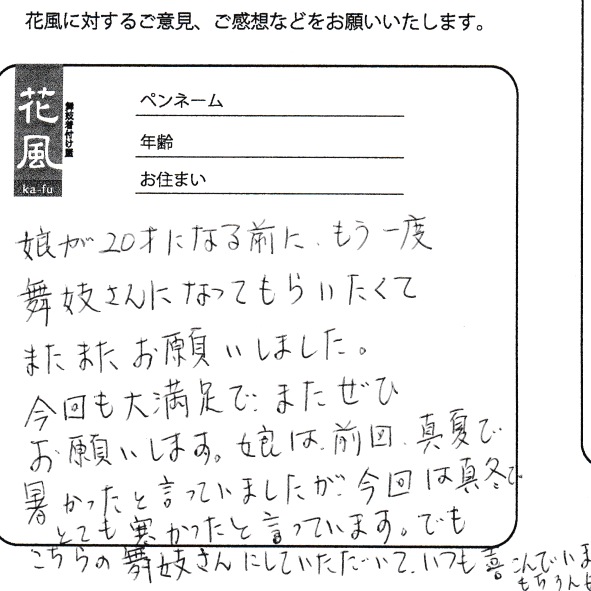 花風に対するご意見、ご感想などをお願いいたします。
花風
舞妓着付け屋
ka-fu
ペンネーム
年齢
お住まい
娘が20才になる前に、もう一度
舞妓さんになってもらいたくて
またまたお願いしました。
今回も大満足で、またぜひ
お願いします。娘は、前回、真夏で
暑かったと言っていましたが、今回は真冬で
とても寒かったと言っています。でも
こちらの舞妓さんにしていただいて、いつも喜こんでいま
もちろん